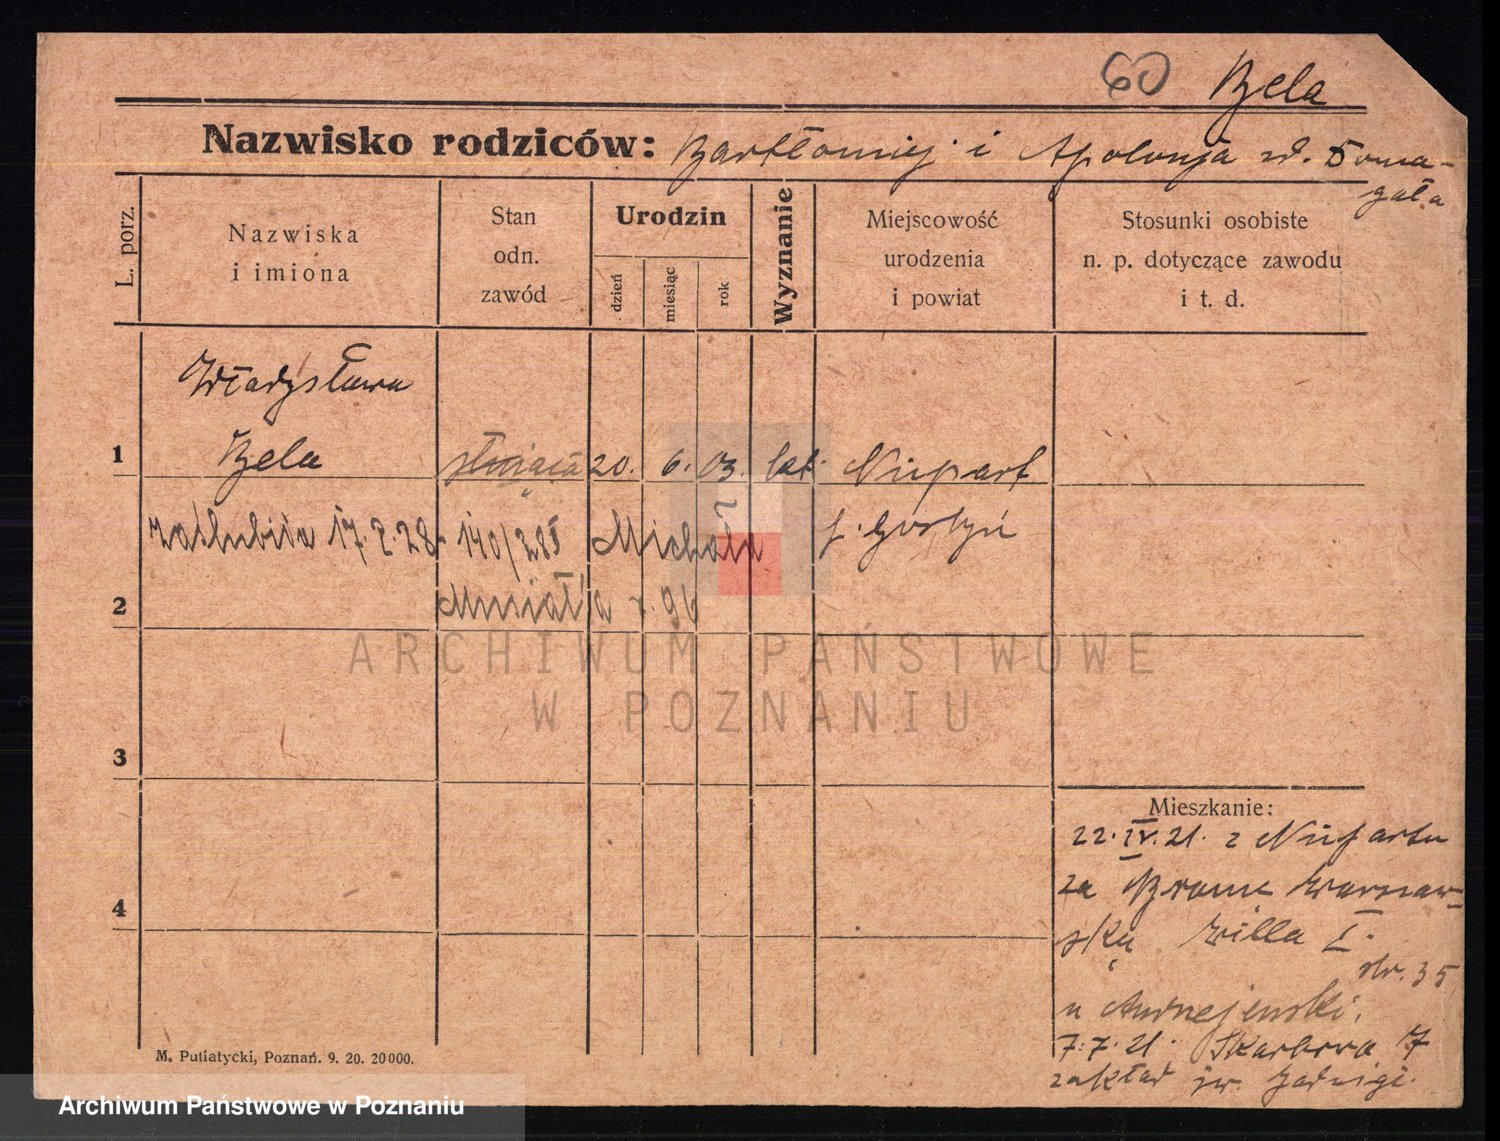 60 Bela
Nazwisko rodziców: Bartłomiej i Apolonja ur. Doma-
gała
L. porz.
Nazwiska
i imiona
Stan
odn.
zawód
Urodzin
dzień
miesiąc
rok
Wyznanie
Miejscowość
urodzenia
i powiat
Stosunki osobiste
n. p. dotyczące zawodu
i t. d.
Władysława
1 Bela służąca 20. 6. 03. kat. Niepart
zaślubiła 17. I. 28 140/28 Michała p. Gostyń
2 r. 96
3
4
Mieszkanie:
22. IV. 21. z Niepartu
za Bramę Warszaw-
ską Willa I.
str. 35
u Andrzejewski.
7. 7. 21. Skarbowa 7
zakład św. Jadwigi.
M. Putiatycki, Poznań. 9. 20. 20000.
ARCHIWUM PAŃSTWOWE
W POZNANIU
Archiwum Państwowe w Poznaniu